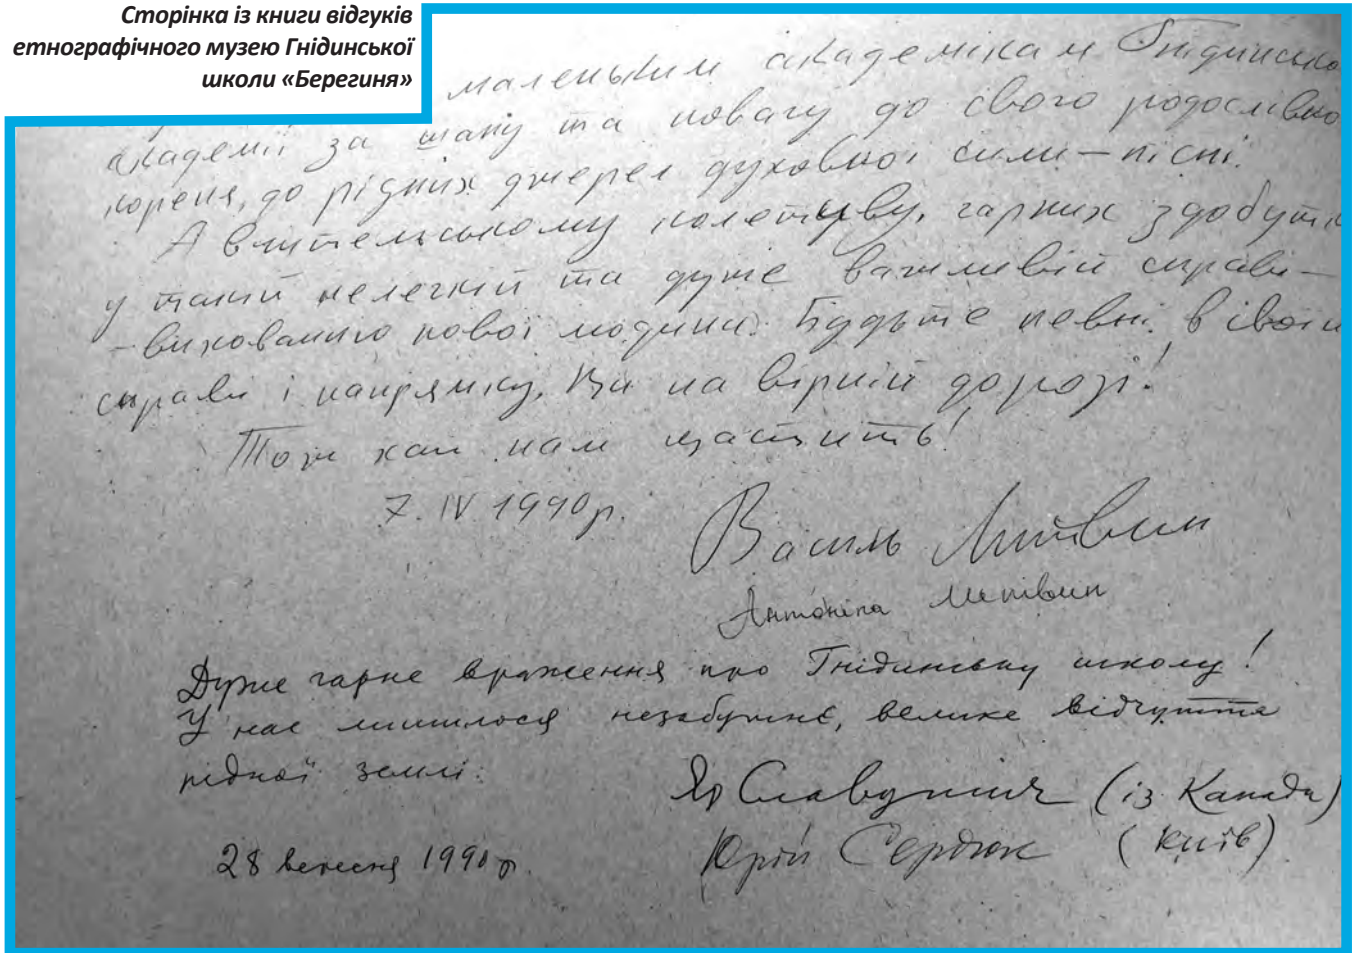 Сторінка із книги відгуків
етнографічного музею Гнідинської
школи «Берегиня»
маленьким академікам Гнідинсько
академії за шану та повагу до свого родослівно
кореня, до рідних джерел духовної сили — пісні.
А вчительському колетиву, гарних здобутк
у такій нелегкій та дуже важливій справі —
— вихованню нової людини. Будьте певні, в своїй
справі і напрямку, Ви на вірній дорозі!
Тож хай нам щастить!
7. IV 1990 р.
Василь Литвин
Антоніна Литвин
Дуже гарне враження про Гнідинську школу!
У нас лишилося незабутнє, велике відчуття
рідної землі.
Яр Славутич (із Канади)
28 вересня 1990 р.
Юрій Сердюк (Київ)